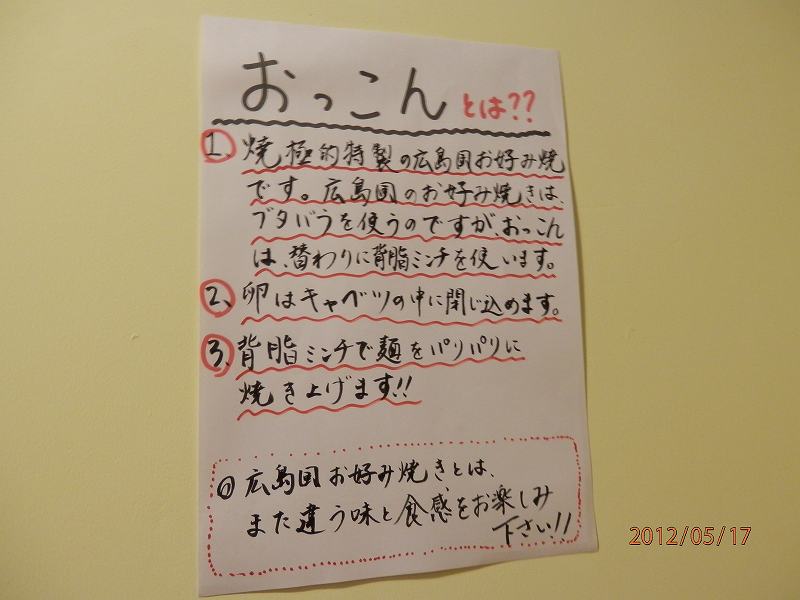 おっこんとは??
1、焼極的特製の広島風お好み焼
です。広島風のお好み焼きは、
ブタバラを使うのですが、おっこん
は、替わりに背脂ミンチを使います。
2、卵はキャベツの中に閉じ込めます。
3、背脂ミンチで麺をパリパリに
焼き上げます!!
◎広島風お好み焼きとは、
また違う味と食感をお楽しみ
下さい!!
2012/05/17